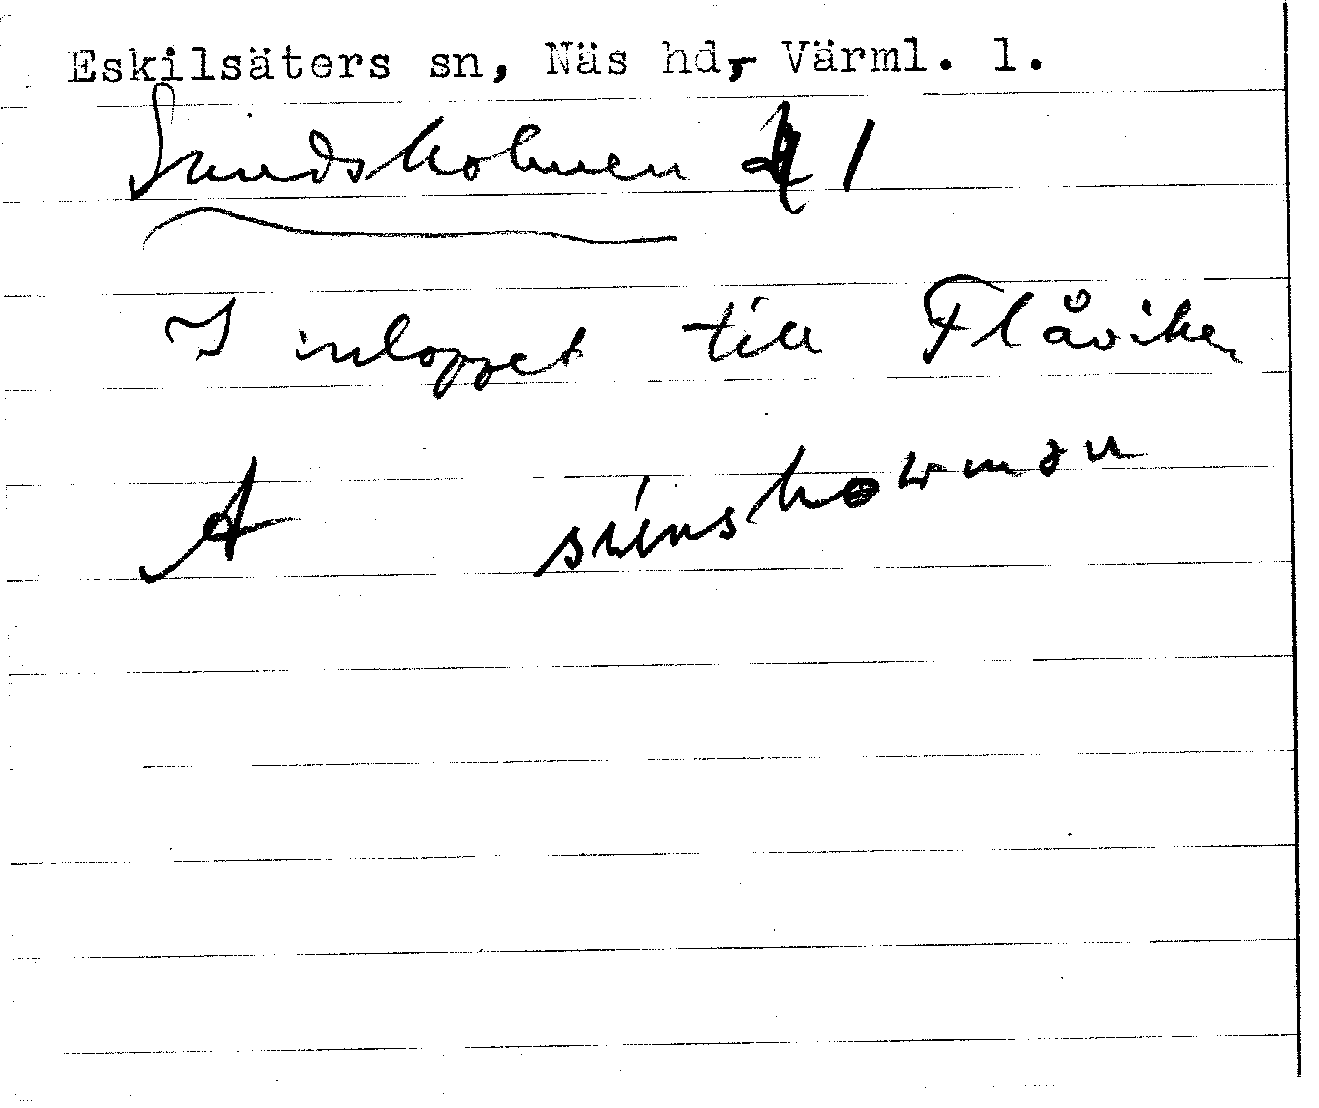 Eskilsäters sn, Näs hd, Värml. l.
Sundsholmen 1
I inloppet till Flåviken
A